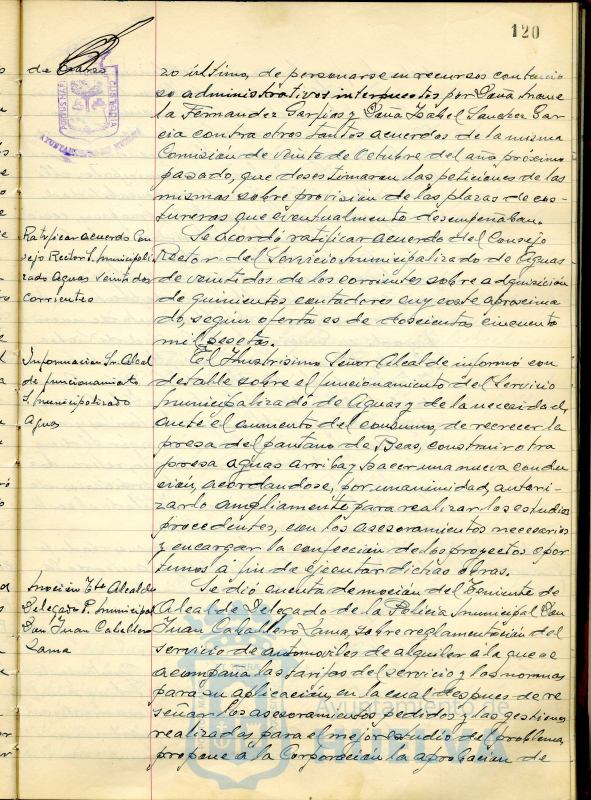 120
de Marzo
PORTUS MARIS
CUSTODIA
AYUNTAMIENTO DE HUELVA
zo último, de personarse en recursos contencio
so administrativos interpuestos por Doña Manue
la Fernandez Garfias y Doña Isabel Sanchez Gar
cia contra otros tantos acuerdos de la misma
Comisión de veinte de Octubre del año proximo
pasado, que desestimaron las peticiones de las
mismas sobre provision de las plazas de cos-
tureras que eventualmente desempeñaban.
Ratificar acuerdo Con
sejo Rector S. municipali
zado Aguas veintidos
corrientes
Se acordó ratificar acuerdo del Consejo
Rector del Servicio municipalizado de Aguas
de veintidos de los corrientes sobre adquisición
de quinientos contadores cuyo coste aproxima
do, según oferta es de doscientas cincuenta
mil pesetas.
Informacion Sr. Alcal
de funcionamiento
S. municipalizado
Aguas
El Ilustrisimo Señor Alcalde informó con
detalle sobre el funcionamiento del Servicio
Municipalizado de Aguas y de la necesidad,
ante el aumento del consumo, de recrecer la
presa del pantano de Beas, construir otra
presa aguas arriba y hacer una nueva conduc
ción, acordandose, por unanimidad, autori-
zarlo ampliamente para realizar los estudios
procedentes, con los asesoramientos necesarios
y encargar la confección de los proyectos opor
tunos á fin de ejecutar dichas obras.
Moción Tte Alcalde
Delegado P. municipal
Don Juan Caballero
Lama
Se dió cuenta de moción del Teniente de
Alcalde Delegado de la Policía Municipal Don
Juan Caballero Lama, sobre reglamentación del
servicio de automoviles de alquiler á la que se
acompaña las tarifas del servicio y las normas
para su aplicación, en la cual despues de re
señar los asesoramientos pedidos y las gestiones
realizadas, para el mejor estudio del problema,
propone á la Corporación la aprobación de
Ayuntamiento de
HUELVA